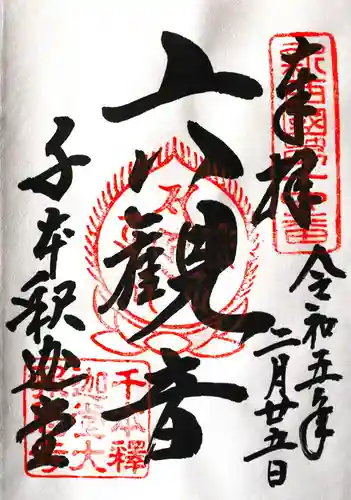 奉拝
令和五年
二月廿五日
六観音
千本釈迦堂
千本釋
迦堂大